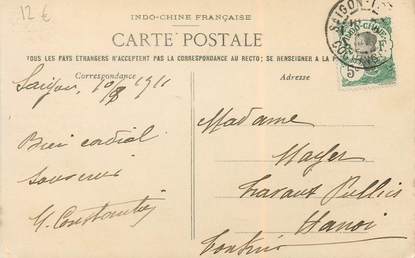 12 €
INDO-CHINE FRANÇAISE
CARTE POSTALE
TOUS LES PAYS ÉTRANGERS N'ACCEPTENT PAS LA CORRESPONDANCE AU RECTO; SE RENSEIGNER A LA P
Correspondance
Adresse
Saigon, 10/8 1911
Bien cordial
souvenir
G. Constantin
Madame
Mayer
Travaux Publics
Hanoi
Tonkin
SAIGON
INDO-CHINE
5